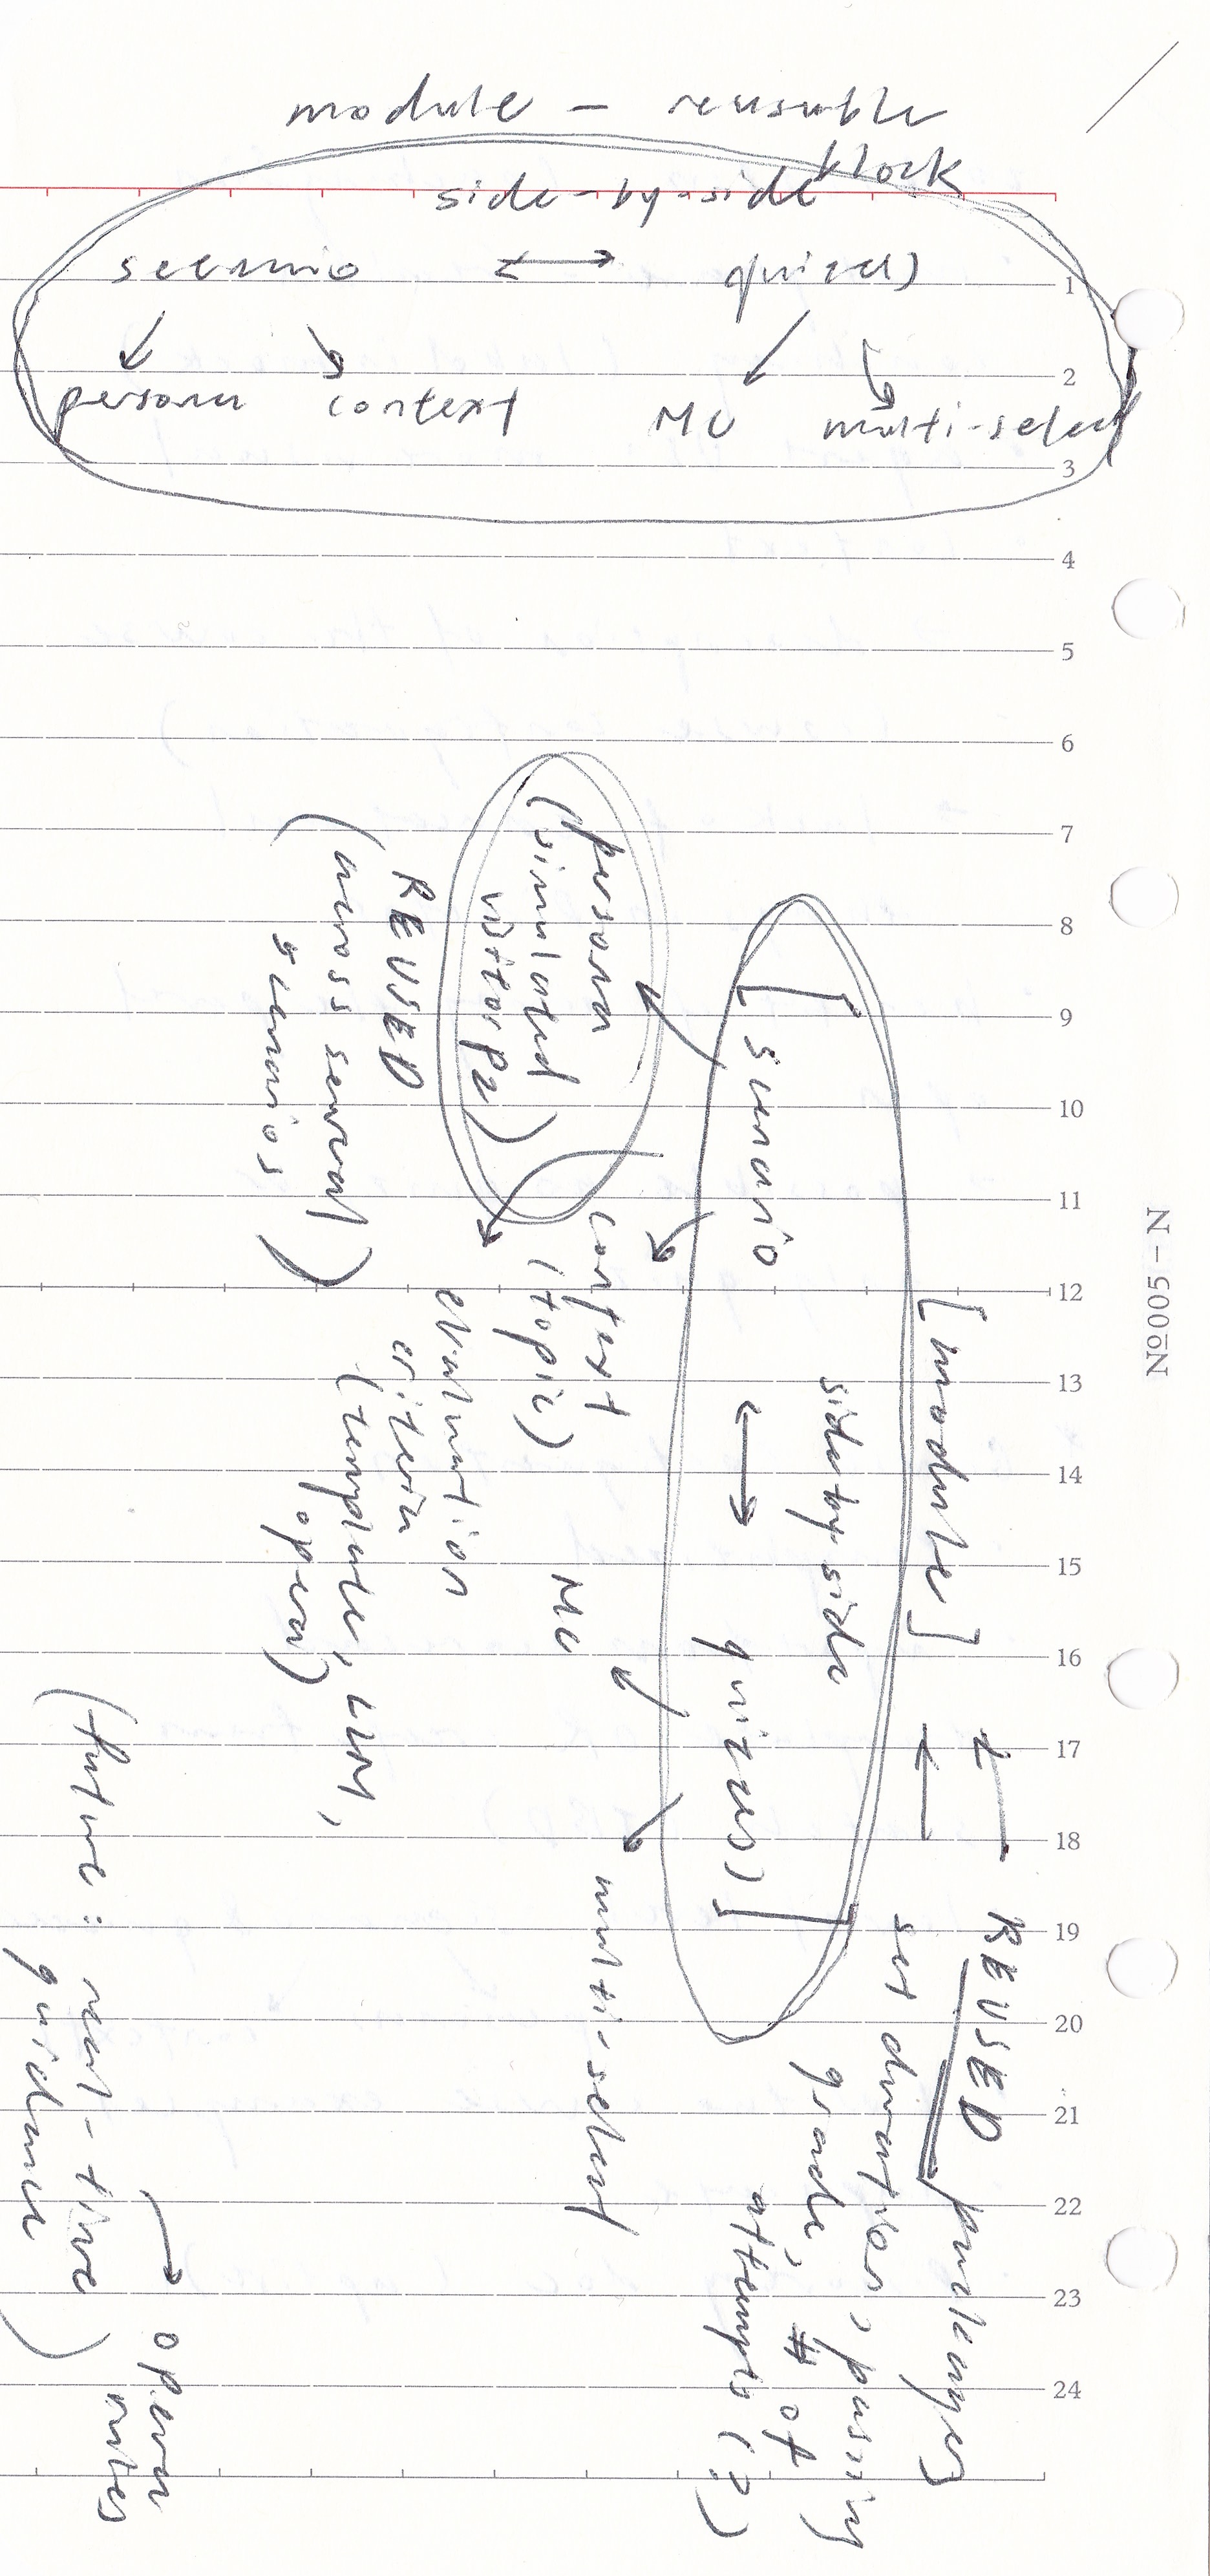 module – reusable
block
side-by-side
scenario ⟷ quiz(es)
persona context MC multi-select
1
2
3
4
5
6
7
8
9
10
11
12
13
14
15
16
17
18
19
20
21
22
23
24
No005-N
REUSED packages
[module] ← set duration, passing
grade, # of
attempts (?)
side by side
[scenario ⟷ quizzes)]
persona context MC multi-select
(simulated (topic)
visitor
evaluation
REUSED criteria
(across several (template, LLM,
scenarios) open)
open
notes
(future: real-time
guidance)